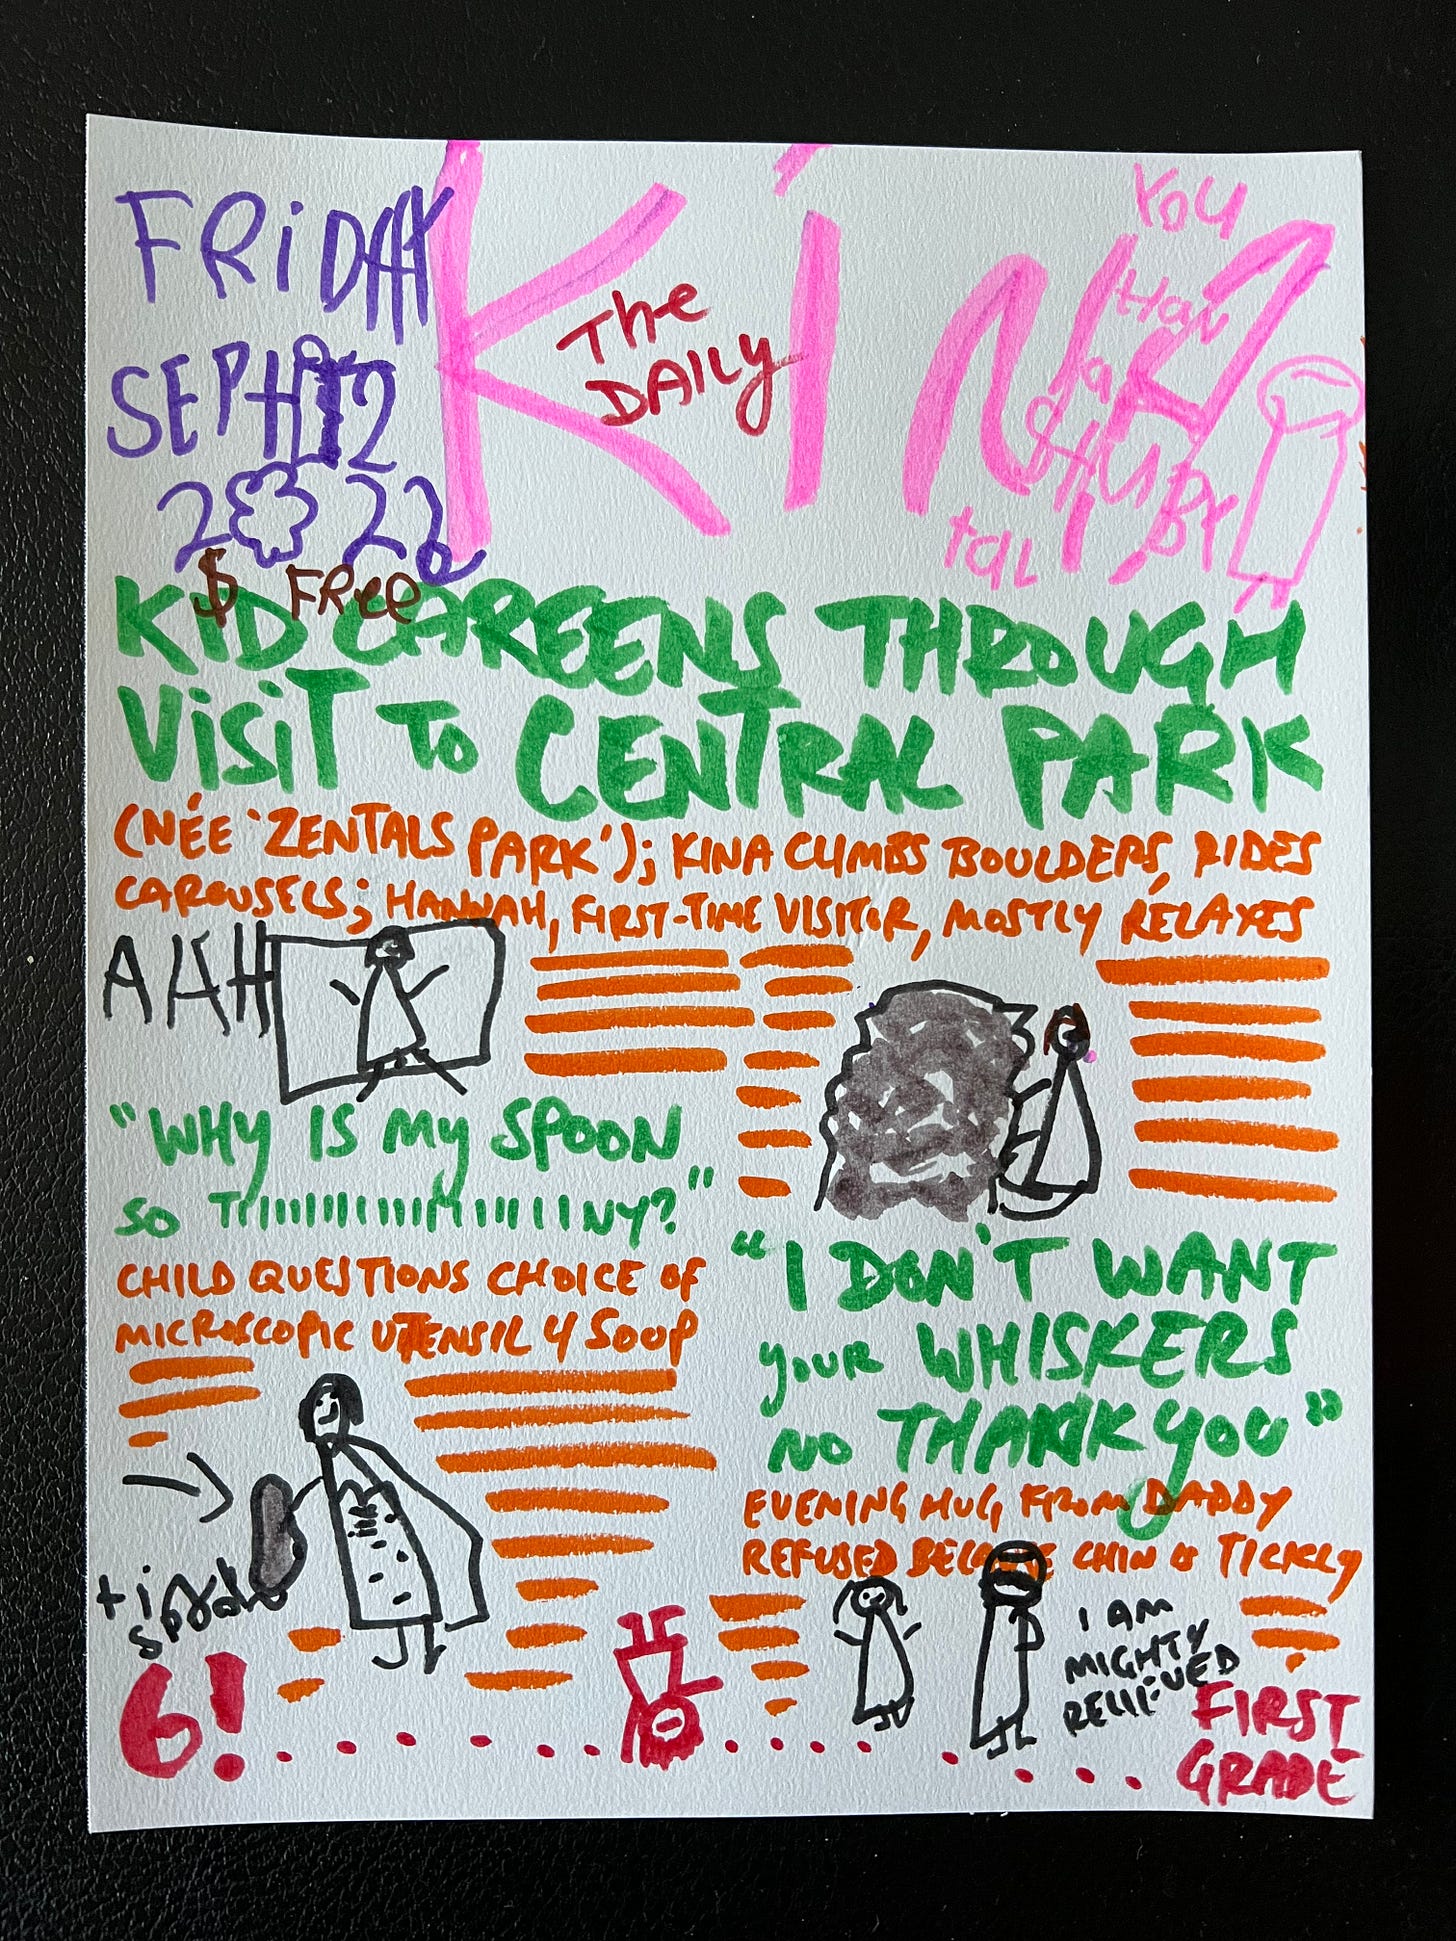 FRiDAY
SEPT 2
2022
The
DAILy
KiNA
YOU
HaN
Na
tal
$ FRee
KiD CAREENS THROUGH
ViSiT To CENTRAL PARK
(NÉE 'ZENTALS PARK'); KINA CLIMBS BOULDERS, RIDES
CAROUSELS; HANNAH, FIRST-TIME VISITOR, MOSTLY RELAXES
AAAH
"WHY IS My SPOON
SO TIIIIIIIIIIIIIIIIIIIINY?"
CHILD QUESTIONS CHOICE OF
MICROSCOPIC UTENSIL 4 SOUP
"I DON'T WANT
your WHISKERS
NO THANK yOU"
EVENING HUG FROM DADDY
REFUSED BECAUSE CHIN IS TICKLY
I AM
MIGHTY
RELIEVED
6!
FIRST
GRADE